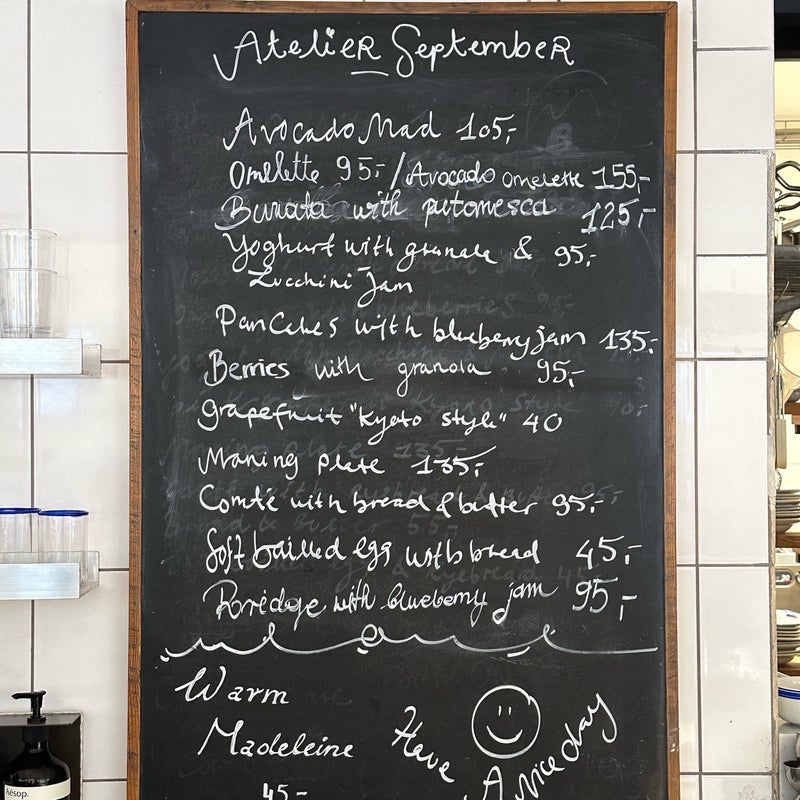 Atelier September
Avocado Mad 105,-
Omelette 95,- / Avocado omelette 155,-
Burrata with putonesca 125,-
Yoghurt with granola & 95,-
Zucchini Jam
Pancakes with blueberry jam 135,-
Berries with granola 95,-
grapefruit "Kyoto style" 40
Morning plate 135,-
Comté with bread & butter 95,-
Soft bailed egg with bread 45,-
Porridge with blueberry jam 95,-
Warm
Madeleine
45,-
Have A nice day
Aēsop.